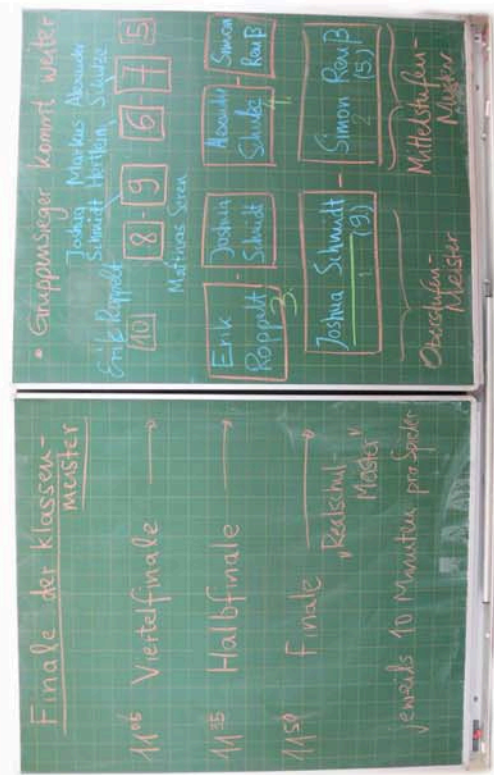 Finale der Klassen-
meister
11⁰⁵ Viertelfinale →
11³⁵ Halbfinale →
11⁵⁰ Finale →
„Realschul-
Meister"
jeweils 10 Minuten pro Spieler
• Gruppensieger kommt weiter
Joshua Markus Alexander
Erik Roppelt Schmidt Hertlein Schulze
10 8 - 9 6 - 7 5
Mathias Seren
Erik Roppelt 3. - Joshua Schmidt
Alexander Schulze 4 - Simon Reuß
Joshua Schmidt (9) 1 - Simon Reuß (5.) 2
Oberstufen- Mittelstufen-
Meister Meister